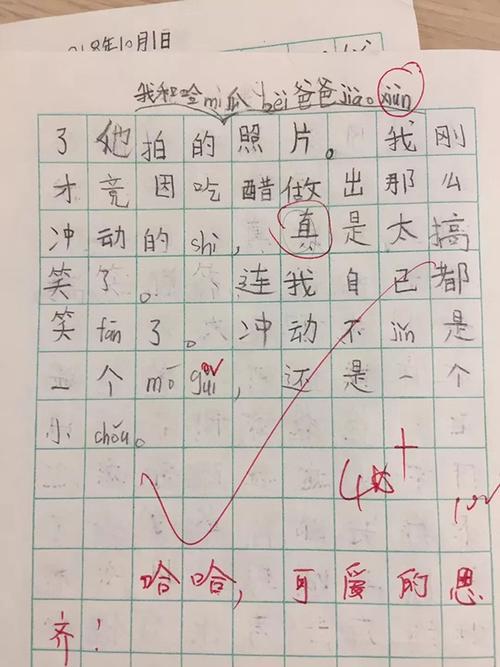 2018年10月1日
我和哈mì瓜 bèi爸爸jiāo xùn
了他拍的照片。我刚
才竞因吃醋做出那么
冲动的shì,真是太搞
笑了。连我自己都
笑fān了。冲动不jǐn是
一个mō guǐ,还是一个
小chǒu。
48+
哈哈,可爱的思
齐!